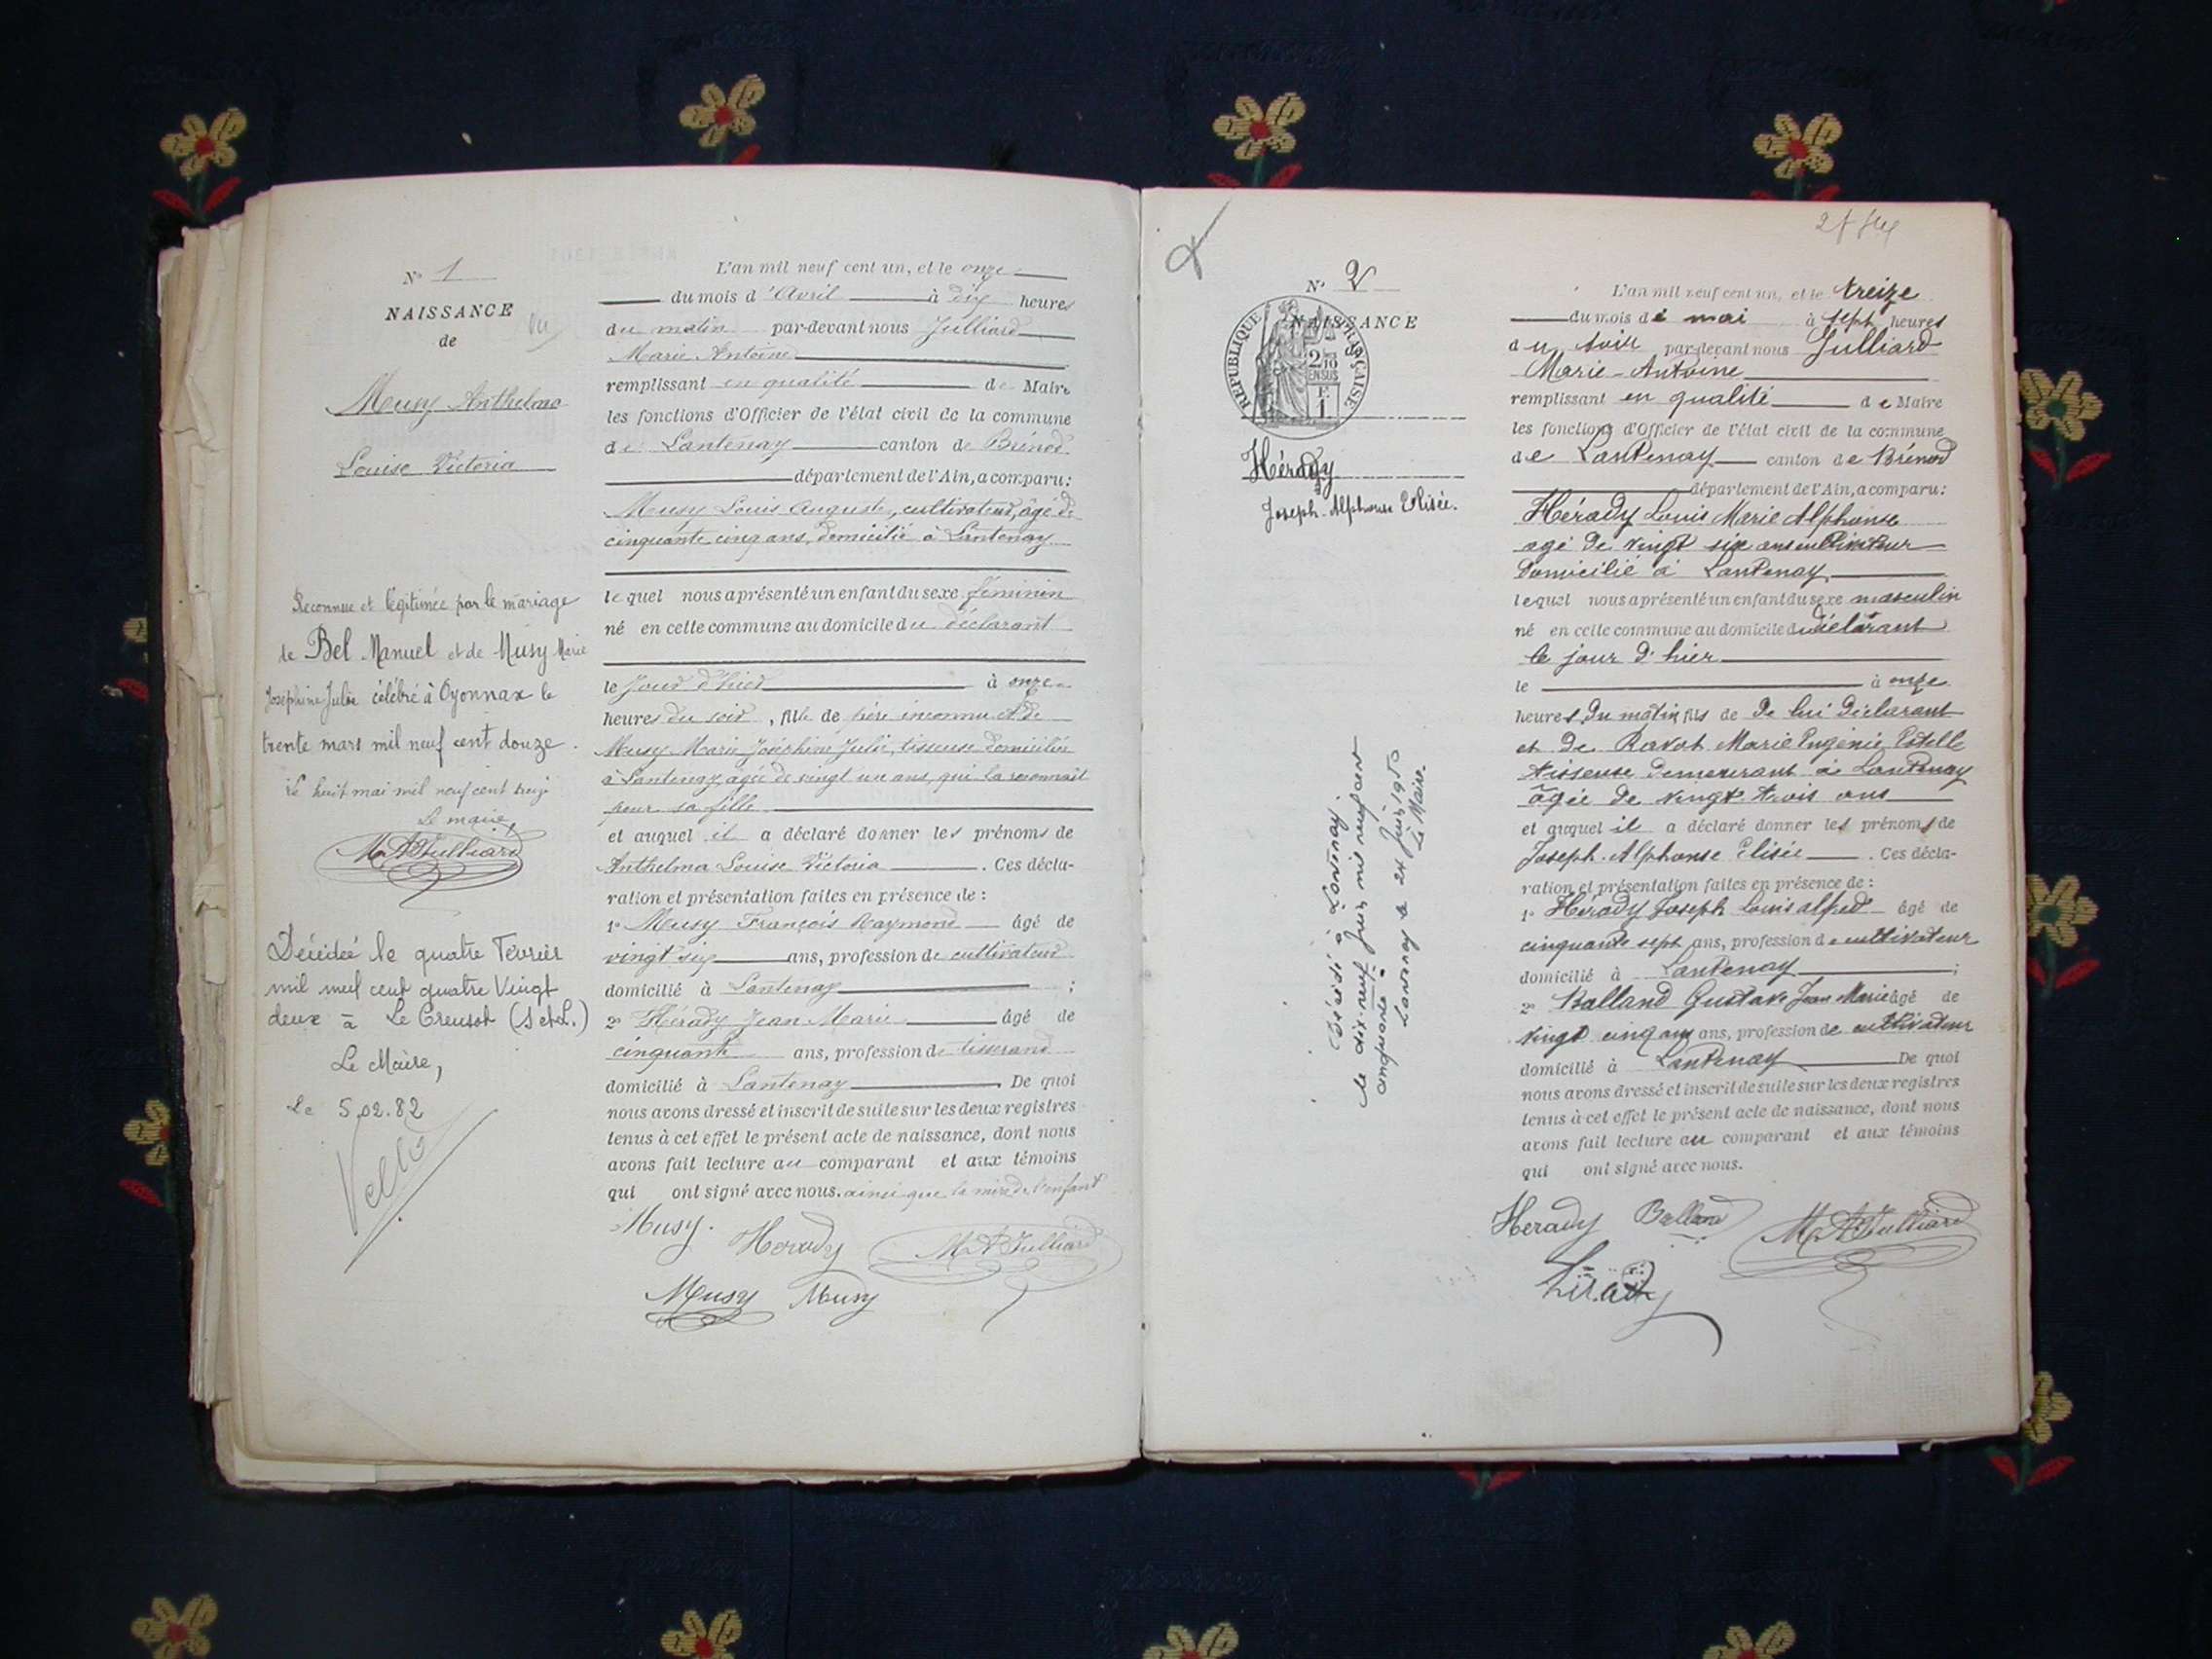 N° 1
NAISSANCE
de
Vu
Musy Anthelma
Louise Victoria
Reconnue et légitimée par le mariage
de Bel Manuel et de Musy Marie
Joséphine Julie célébré à Oyonnax le
trente mars mil neuf cent douze.
Le huit mai mil neuf cent treize
Le maire,
MAJulliard
Décédée le quatre Février
mil neuf cent quatre Vingt
deux à Le Creusot (S et L.)
Le Maire,
Le 5.02.82
L'an mil neuf cent un, et le onze
du mois d'Avril à dix heures
du matin par-devant nous Julliard
Marie Antoine
remplissant en qualité de Maire
les fonctions d'Officier de l'état civil de la commune
de Lantenay canton de Brénod
département de l'Ain, a comparu:
Musy Louis Auguste, cultivateur, âgé de
cinquante cinq ans, domicilié à Lantenay
lequel nous a présenté un enfant du sexe féminin
né en cette commune au domicile du déclarant
le jour d'hier à onze
heures du soir, fille de père inconnu et de
Musy Marie Joséphine Julie, tisseuse domiciliée
à Lantenay, agée de vingt un ans, qui la reconnait
pour sa fille
et auquel il a déclaré donner les prénoms de
Anthelma Louise Victoria. Ces décla-
ration et présentation faites en présence de:
1° Musy François Raymond âgé de
vingt six ans, profession de cultivateur
domicilié à Lantenay;
2° Hérady Jean Marie âgé de
cinquante ans, profession de tisserand
domicilié à Lantenay. De quoi
nous avons dressé et inscrit de suite sur les deux registres
tenus à cet effet le présent acte de naissance, dont nous
avons fait lecture au comparant et aux témoins
qui ont signé avec nous. ainsi que la mère de l'enfant
Musy. Herady MAJulliard
Musy Musy
N° 2
NAISSANCE
RÉPUBLIQUE FRANÇAISE
2/10 EN SUS
Hérady
Joseph-Alphonse Elisée.
Décédé à Lantenay.
le dix-neuf Juin mil neuf cent
cinquante
Lantenay le 24 Juin 1950
Le Maire.
L'an mil neuf cent un, et le treize
du mois de mai à sept heures
du soir par-devant nous Julliard
Marie-Antoine
remplissant en qualité de Maire
les fonctions d'Officier de l'état civil de la commune
de Lantenay canton de Brénod
département de l'Ain, a comparu:
Hérady Louis Marie Alphonse
agé de vingt six ans cultivateur
domicilié à Lantenay
lequel nous a présenté un enfant du sexe masculin
né en cette commune au domicile du déclarant
le jour d'hier
le à onze
heures du matin fils de de lui déclarant
et de Ravot Marie Eugénie Estelle
tisseuse demeurant à Lantenay
âgée de vingt trois ans
et auquel il a déclaré donner les prénoms de
Joseph-Alphonse Elisée. Ces décla-
ration et présentation faites en présence de:
1° Hérady Joseph Louis alfred âgé de
cinquante sept ans, profession de cultivateur
domicilié à Lantenay;
2° Balland Gustave Jean Marie âgé de
vingt cinq ans ans, profession de cultivateur
domicilié à Lantenay De quoi
nous avons dressé et inscrit de suite sur les deux registres
tenus à cet effet le présent acte de naissance, dont nous
avons fait lecture au comparant et aux témoins
qui ont signé avec nous.
Herady Balland MAJulliard
Hérady